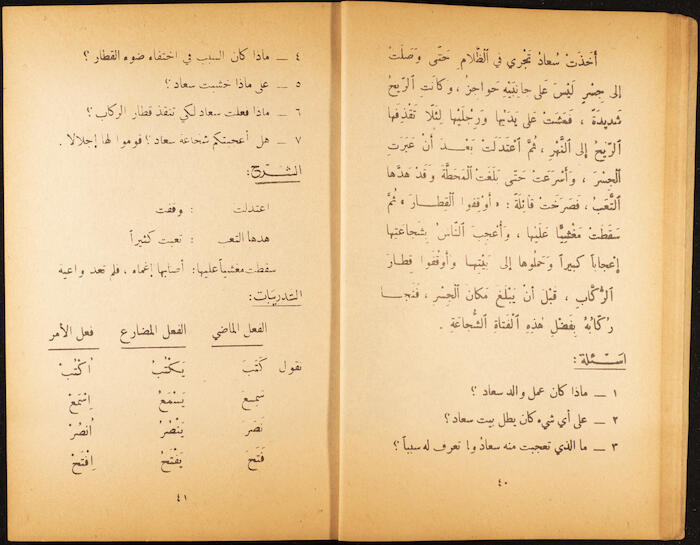 أَخَذَتْ سُعادُ تَجْرِي في الظَّلامِ حَتَّى وَصَلَتْ
إلى جِسْرٍ لَيْسَ عَلى جانِبَيْهِ حَواجِزُ ، وكانَتِ الرِّيحُ
شَدِيدَةً ، فَمَشَتْ عَلى يَدَيْها وَرِجْلَيْها لِئَلّا تَقْذِفَها
الرِّيحُ إلى النَّهْرِ ، ثُمَّ اعْتَدَلَتْ بَعْدَ أَنْ عَبَرَتِ
الْجِسْرَ ، وَأَسْرَعَتْ حَتَّى بَلَغَتْ الْمَحَطَّةَ وَقَدْ هَدَّها
التَّعَبُ ، فَصَرَخَتْ قائِلَةً : « أَوْقِفُوا الْقِطارَ » ثُمَّ
سَقَطَتْ مَغْشِيًّا عَلَيْها ، وَأُعْجِبَ النَّاسُ بِشَجاعَتِها
إعْجاباً كَبِيراً وَحَمَلُوها إلى بَيْتِها وَأَوْقَفُوا قِطارَ
الرُّكَّابِ ، قَبْلَ أَنْ يَبْلُغَ مَكانَ الْجِسْرِ ، فَنَجا
رُكَّابُهُ بِفَضْلِ هٰذِهِ الْفَتاةِ الشُّجاعَةِ .
أسئلة :
١ ــ ماذا كان عمل والد سعاد ؟
٢ ــ على أي شيء كان يطل بيت سعاد ؟
٣ ــ ما الذي تعجبت منه سعادُ ولم تعرف له سبباً ؟
٤٠
٤ ــ ماذا كان السبب في اختفاء ضوء القطار ؟
٥ ــ على ماذا خشيت سعاد ؟
٦ ــ ماذا فعلت سعاد لكي تنقذ قطار الركاب ؟
٧ ــ هل أعجبتكم شجاعة سعاد ؟ قوموا لها إجلالا .
الشرح :
اعتدلت : وقفت
هدها التعب : تعبت كثيراً
سقطت مغشياً عليها : أصابها إغماء ، فلم تعد واعية
التدريبات :
الفعل الماضي الفعل المضارع فعل الأمر
نقول كَتَبَ يَكْتُبُ اُكْتُبْ
سَمِعَ يَسْمَعُ اِسْمَعْ
نَصَرَ يَنْصُرُ اُنصُرْ
فَتَحَ يَفْتَحُ اِفْتَحْ
٤١